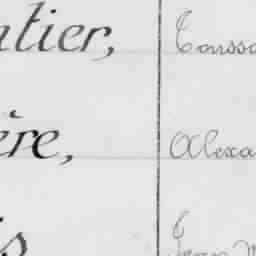 atier, Toussa
ère, Alexa
is Jean M